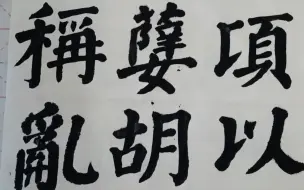 項以
孽胡
稱亂